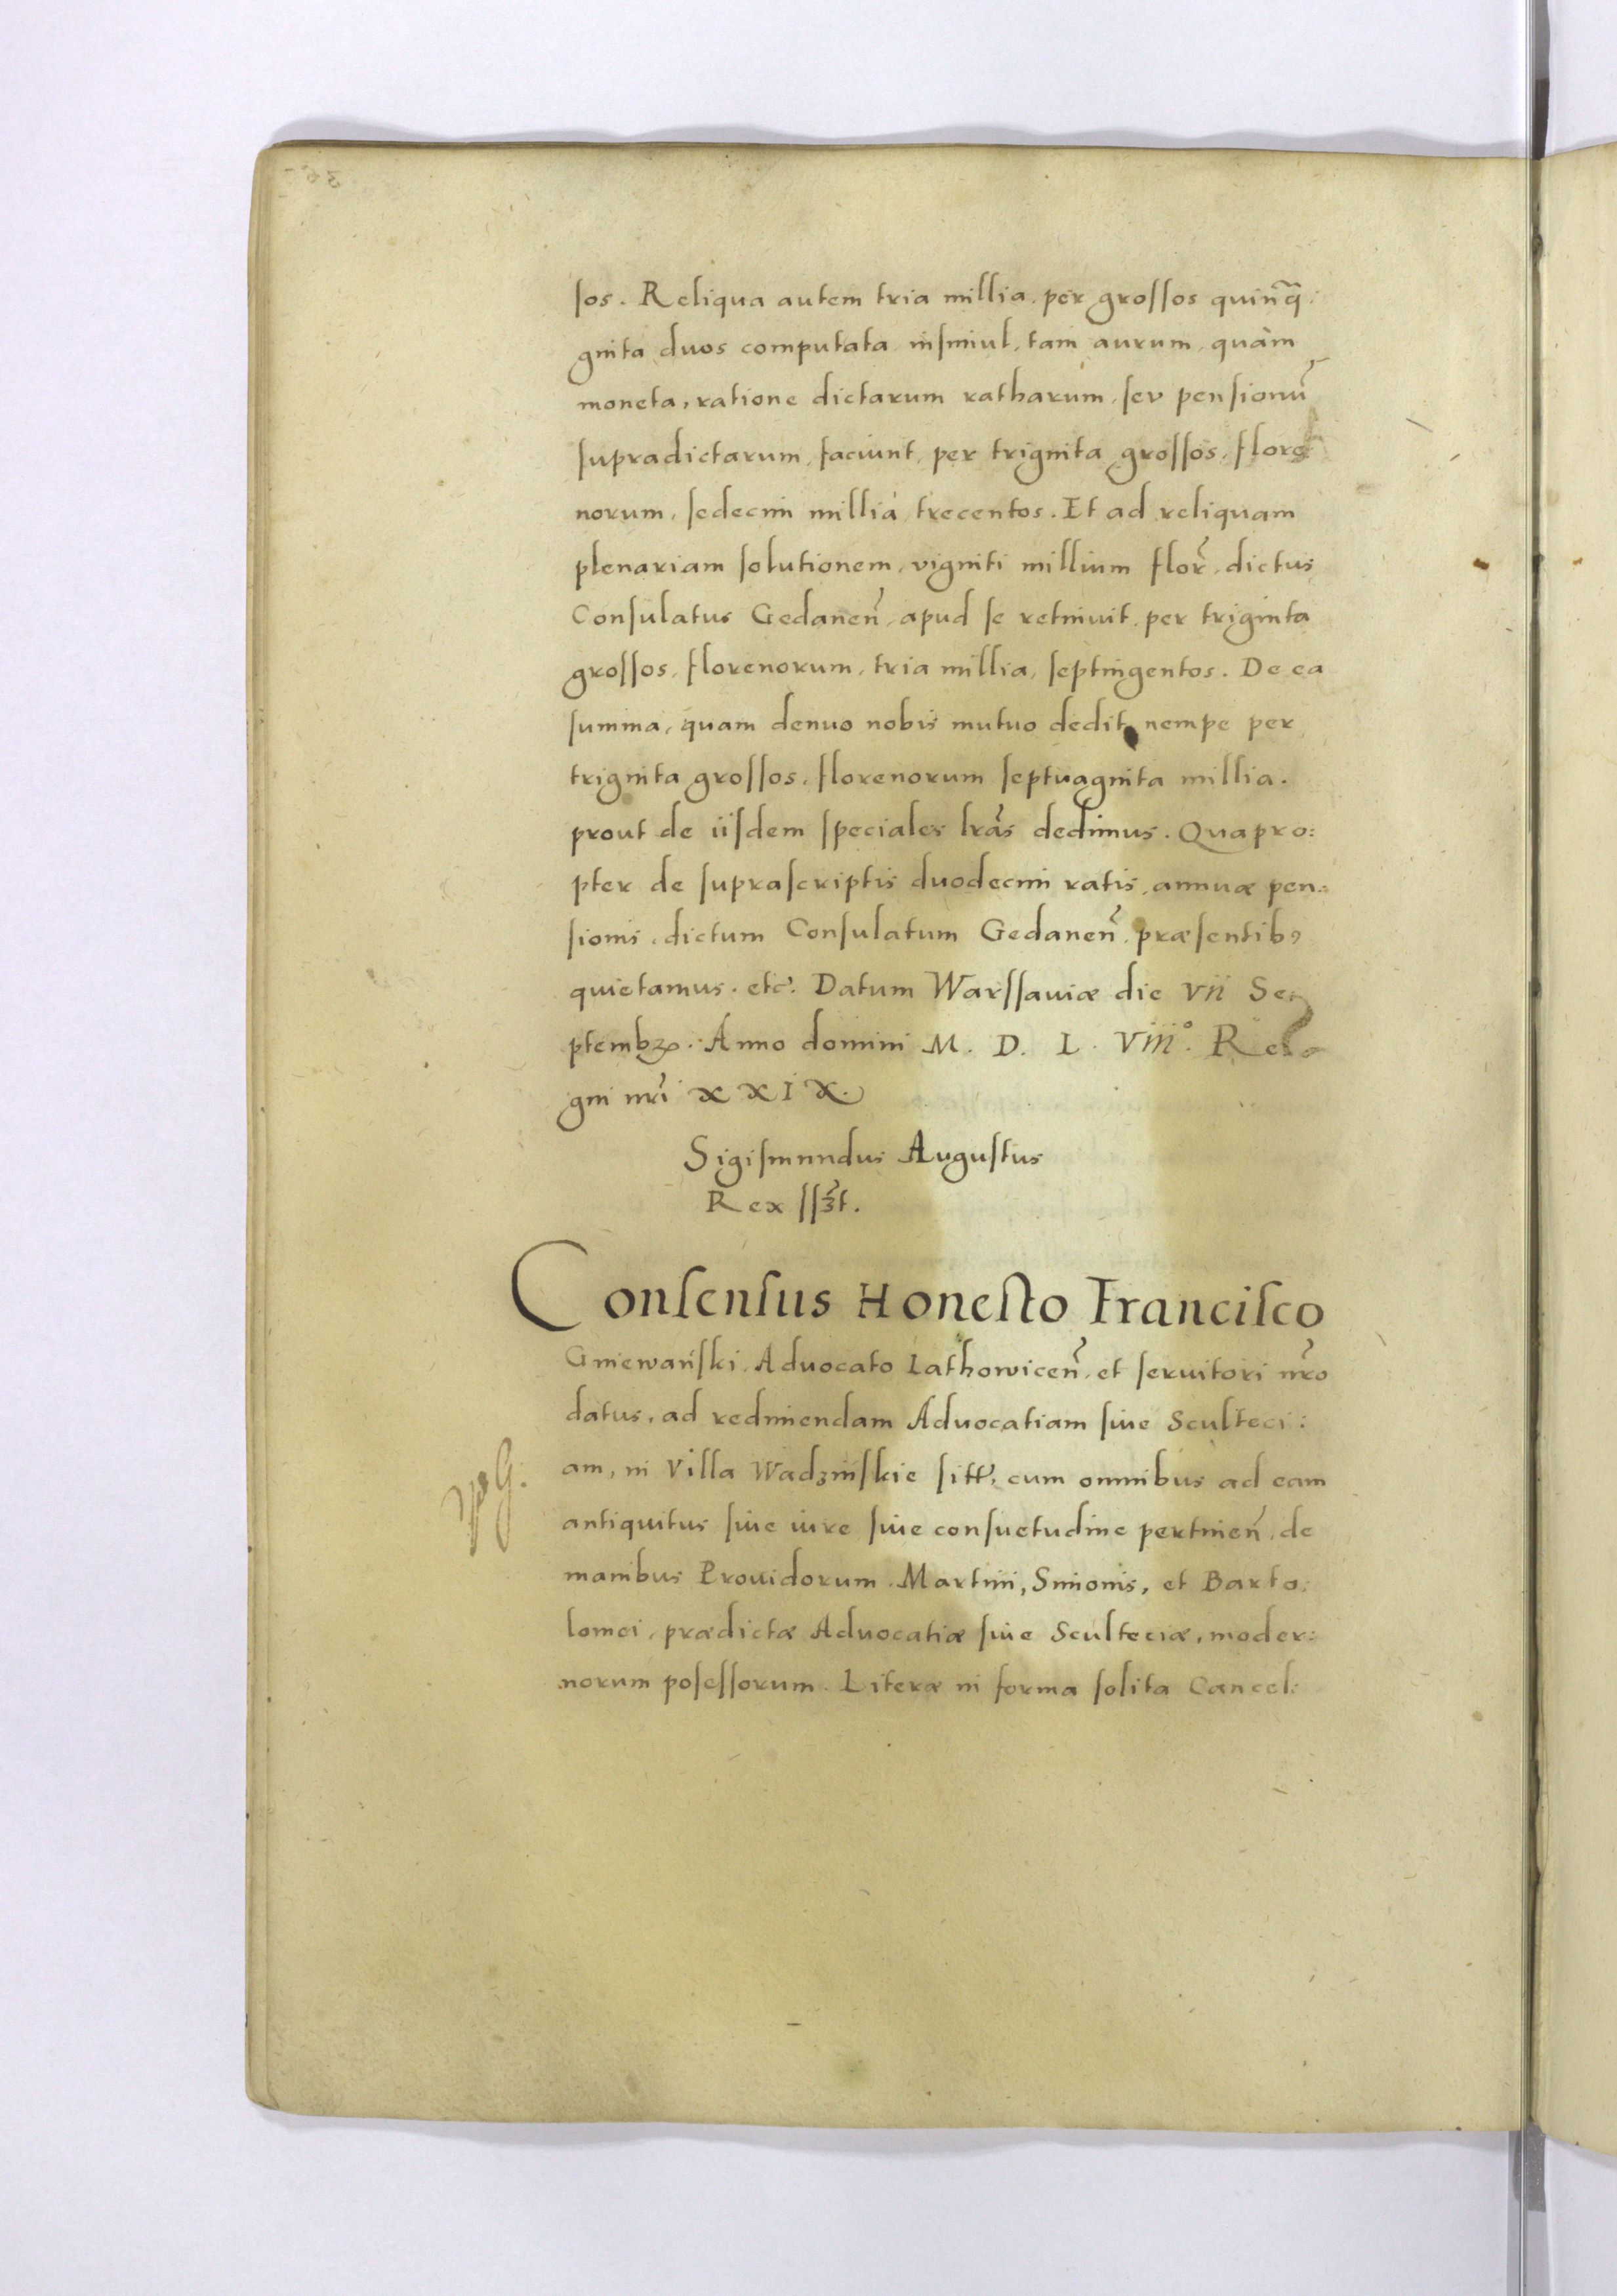 ſos. Reliqua autem tria millia, per groſſos quinq̃:
ginta duos computata inſimul, tam aurum, quàm
moneta, ratione dictarum ratharum, ſeu penſionũ
ſupradictarum, faciunt, per triginta groſſos, flore:
norum, ſedecim millia, trecentos. Et ad reliquam
plenariam ſolutionem, viginti millium flor̃, dictus
Conſulatus Gedaneñ, apud ſe retinuit, per triginta
groſſos, florenorum, tria millia, ſeptingentos. De ea
ſumma, quam denuo nobis mutuo dedit, nempe per
triginta groſſos, florenorum ſeptuaginta millia.
prout de iiſdem ſpeciales lr̃as dedimus. Quapro:
pter de ſupraſcriptis duodecim ratis, annuæ pen:
ſionis, dictum Conſulatum Gedaneñ, præſentibꝰ
quietamus. etc̃. Datum Warſſauiæ die VII Se:
ptembꝝ. Anno domini M. D. L. VIII°. Re:
gni nr̃i XXIX.
Sigiſmundus Auguſtus
Rex ſſꝫt.
Conſenſus Honeſto Franciſco
Gniewańſki, Aduocato Lathowiceñ, et ſeruitori nr̃o
datus, ad redimendam Aduocatiam ſiue Sculteci:
am, in Villa Wadzinſkie ſitt̃, cum omnibus ad eam
antiquitus ſiue iure ſiue conſuetudine pertineñ, de
manibus Prouidorum. Martini, Simonis, et Barto:
lomei, prædictæ Aduocatiæ ſiue Sculteciæ, moder:
norum poſeſſorum. Literæ in forma ſolita Cancel: